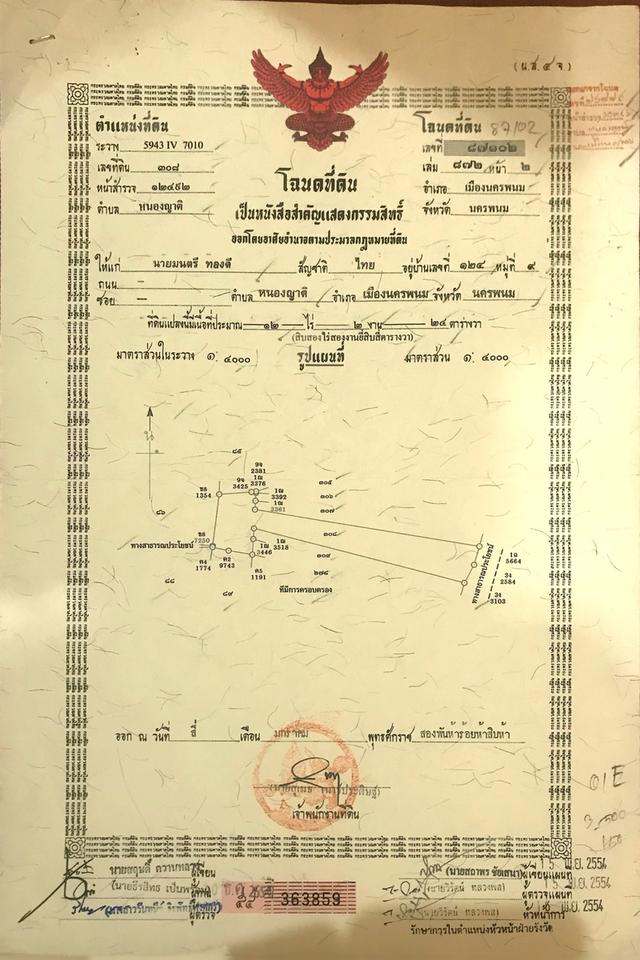 (น.ส. ๔ จ.)
ตำแหน่งที่ดิน
ระวาง 5943 IV 7010
เลขที่ดิน ๓๐๘
หน้าสำรวจ ๑๒๔๙๒
ตำบล หนองญาติ
โฉนดที่ดิน 87102
เลขที่ ๘๗๑๐๒
เล่ม ๘๗๒ หน้า ๒
อำเภอ เมืองนครพนม
จังหวัด นครพนม
โฉนดที่ดิน
เป็นหนังสือสำคัญแสดงกรรมสิทธิ์
ออกโดยอาศัยอำนาจตามประมวลกฎหมายที่ดิน
ให้แก่ นายมนตรี ทองดี สัญชาติ ไทย อยู่บ้านเลขที่ ๑๒๔ หมู่ที่ ๙
ถนน —
ซอย — ตำบล หนองญาติ อำเภอ เมืองนครพนม จังหวัด นครพนม
ที่ดินแปลงนี้มีเนื้อที่ประมาณ ๑๒ ไร่ ๒ งาน ๒๔ ตารางวา
(สิบสองไร่สองงานยี่สิบสี่ตารางวา)
มาตราส่วนในระวาง ๑: ๔๐๐๐ รูปแผนที่ มาตราส่วน ๑: ๔๐๐๐
น
๘๕
9จ
2381
9จ
3425
1ณ
3376
ซ8
1354
1ณ
3392
3361
๓๐๕
๓๐๖
๓๐๗
๘๖
ซ8
7250
ทางสาธารณประโยชน์
ค4
1774
ค2
9743
1ณ
3446
1ณ
3518
ค5
1191
๓๐๘
๓๐๙
๒๗๘
ที่มีการครอบครอง
๘๘
๘๙
ทางสาธารณประโยชน์
1ฉ
5664
3ง
2584
3ง
3103
ออก ณ วันที่ สี่ เดือน มกราคม พุทธศักราช สองพันห้าร้อยห้าสิบห้า
เจ้าพนักงานที่ดิน
01E
ผู้เขียน
ผู้ตรวจ
363859
(นายสถาพร ชัยเสนา) ผู้เขียนแผนที่ 15 พ.ย. 2554
(นายวิรัตน์ หลวงพล) ผู้ตรวจแผนที่
(นายวิรัตน์ หลวงพล) หัวหน้าการ พ.ย. 2554
รักษาการในตำแหน่งหัวหน้าฝ่ายรังวัด